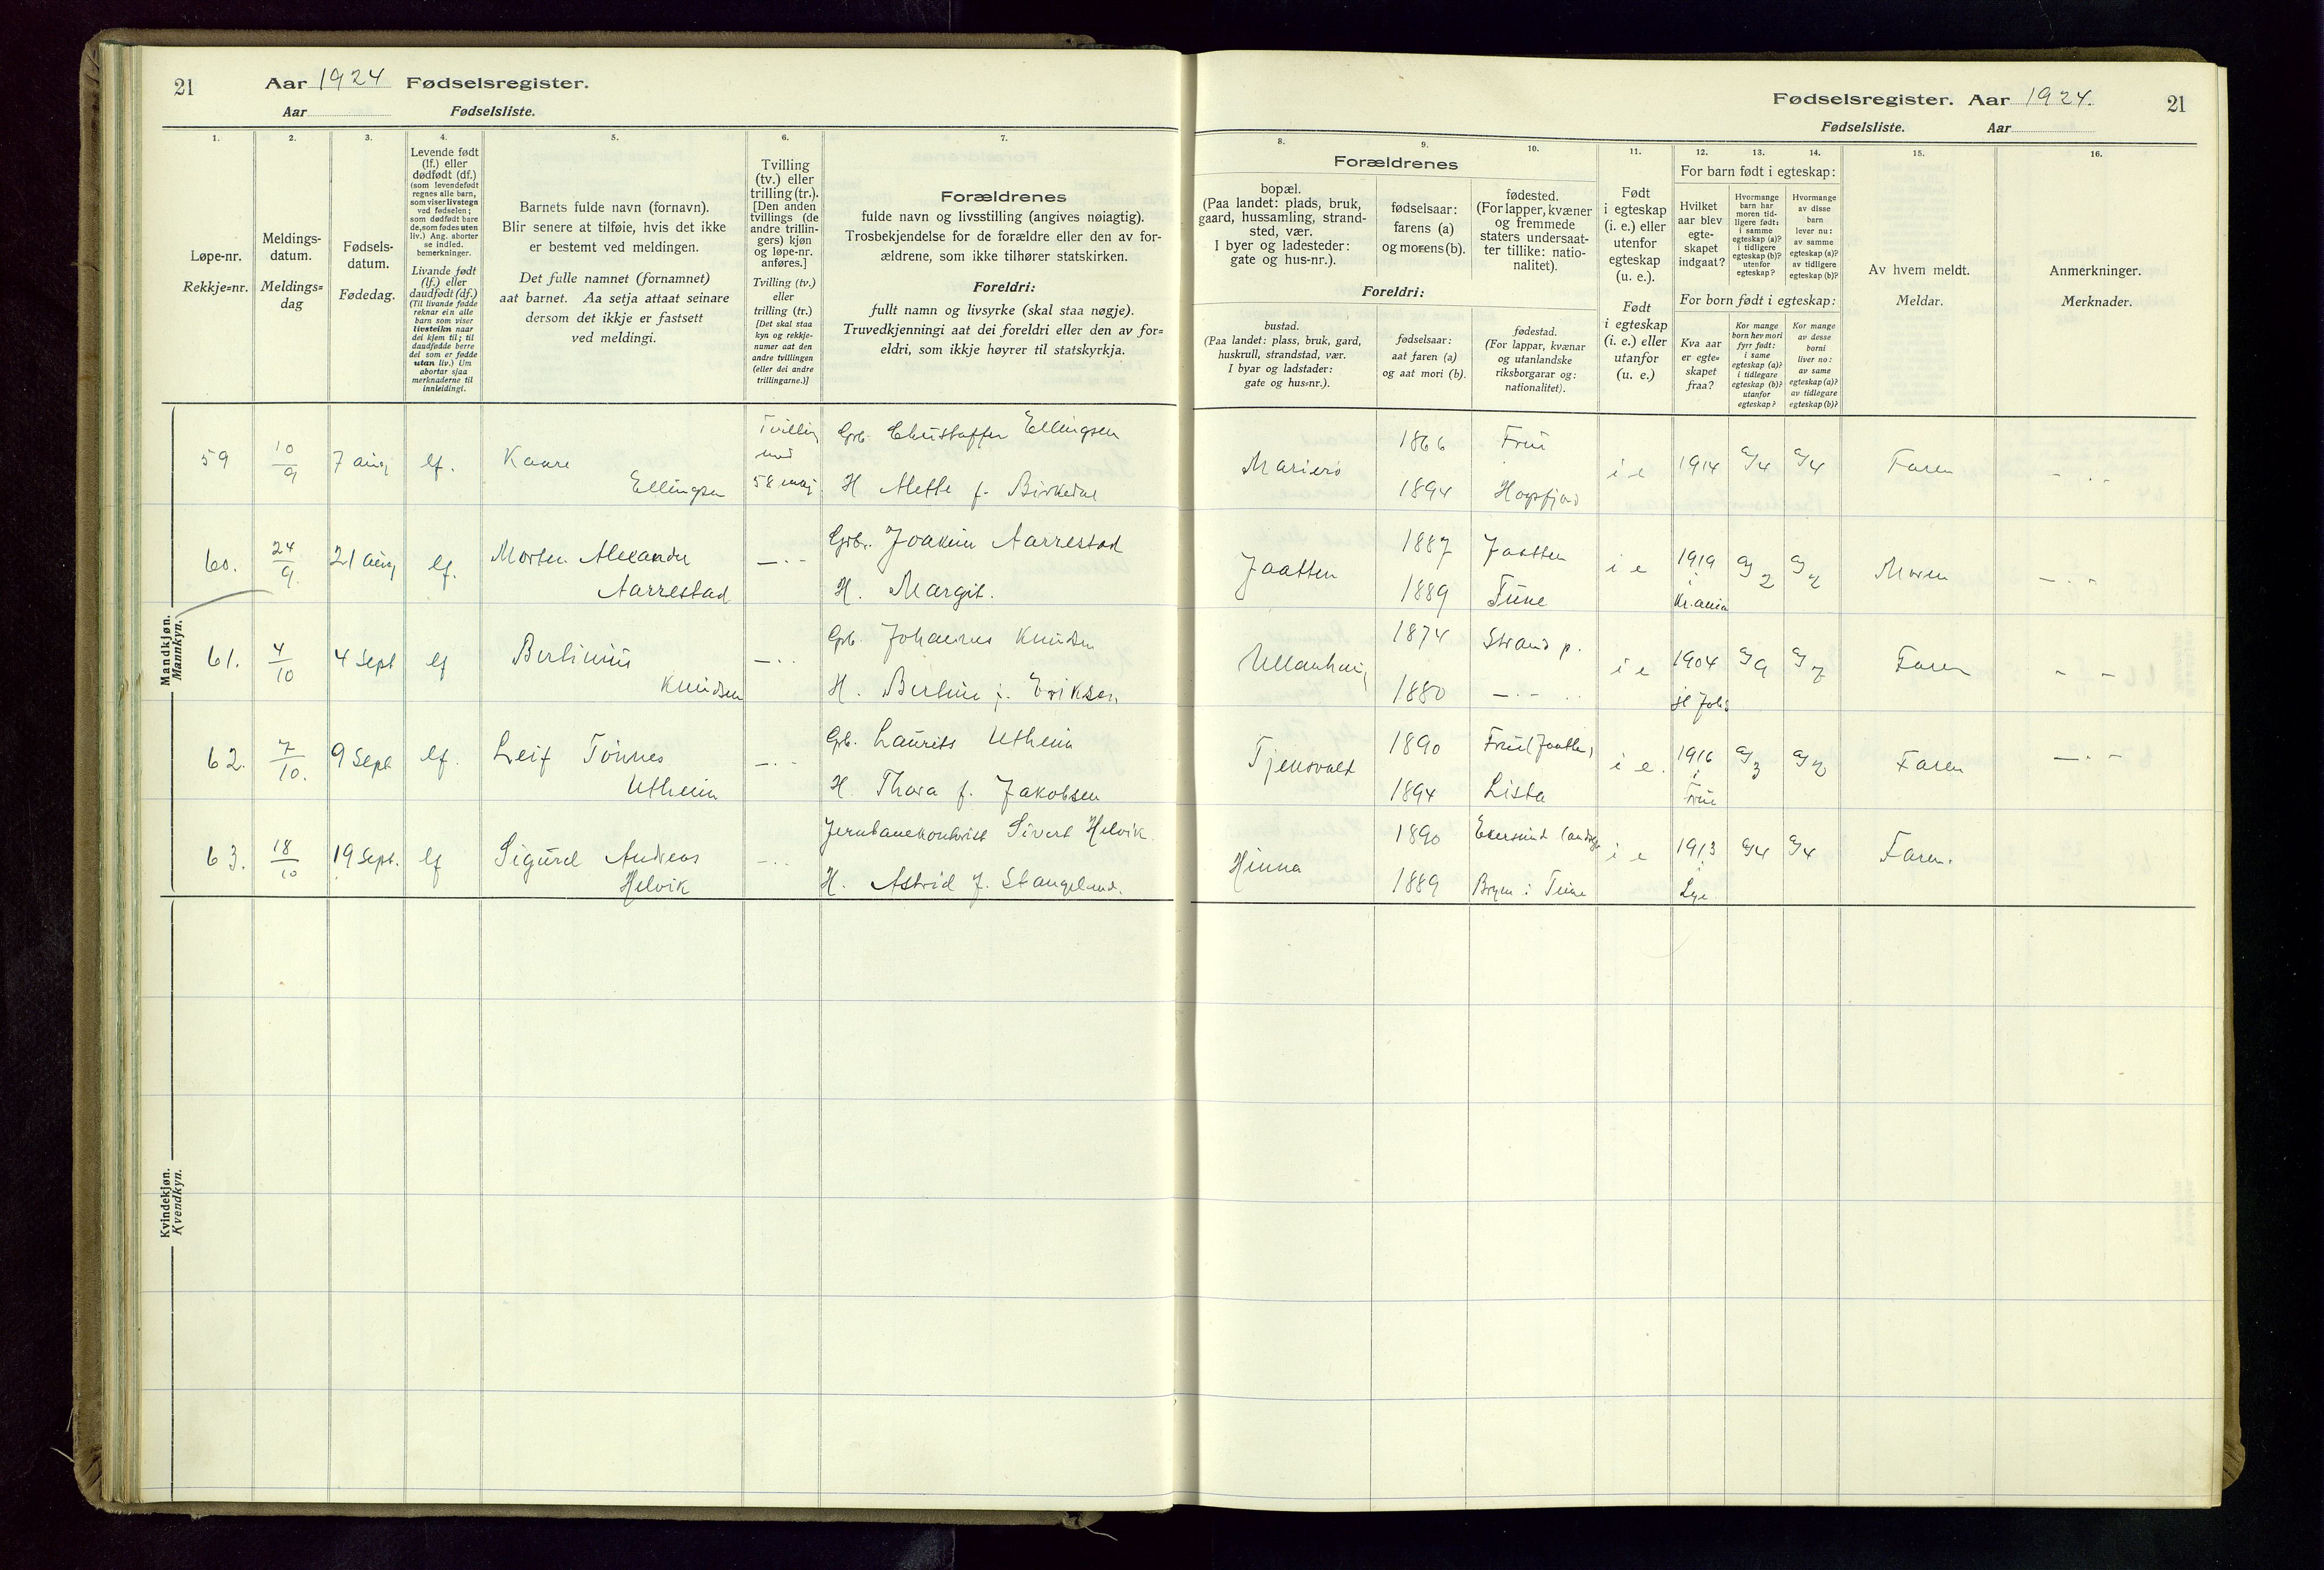 21 Aar 1924 Fødselsregister.
Aar Fødselsliste.
Fødselsregister. Aar 1924. 21
Fødselsliste. Aar
1. 2. 3. 4. 5. 6. 7.
Løpe-nr.
Rekkje=nr.
Meldings-
datum.
Meldings=
dag
Fødsels-
datum.
Fødedag.
Levende født
(lf.) eller
dødfødt (df.)
(som levendefødt
regnes alle barn,
som viser livstegn
ved fødselen;
som dødfødt bare
de, som fødes uten
liv.) Ang. aborter
se indled.
bemerkninger.
Livande født
(lf.) eller
daudfødt (df.)
(Til livande fødde
reknar ein alle
barn som viser
livsteikn naar
dei kjem til; til
daudfødde berre
dei som er fødde
utan liv.) Um
abortar sjaa
merknaderne til
innleidingi.
Barnets fulde navn (fornavn).
Blir senere at tilføie, hvis det ikke
er bestemt ved meldingen.
Det fulle namnet (fornamnet)
aat barnet. Aa setja attaat seinare
dersom det ikkje er fastsett
ved meldingi.
Tvilling
(tv.) eller
trilling (tr.).
[Den anden
tvillings (de
andre trillin-
gers) kjøn
og løpe-nr.
anføres.]
Tvilling (tv.)
eller
trilling (tr.)
[Det skal staa
kyn og rekkje-
numer aat den
andre tvillingen
(eller dei andre
trillingarne.)]
Forældrenes
fulde navn og livsstilling (angives nøiagtig).
Trosbekjendelse for de forældre eller den av for-
ældrene, som ikke tilhører statskirken.
Foreldri:
fullt namn og livsyrke (skal staa nøgje).
Truvedkjenningi aat dei foreldri eller den av for=
eldri, som ikkje høyrer til statskyrkja.
8. 9. 10. 11. 12. 13. 14. 15. 16.
Forældrenes
bopæl.
(Paa landet: plads, bruk,
gaard, hussamling, strand-
sted, vær.
I byer og ladesteder:
gate og hus-nr.).
fødselsaar:
farens (a)
og morens (b).
fødested.
(For lapper, kvæner
og fremmede
staters undersaat-
ter tillike: natio-
nalitet).
Foreldri:
bustad.
(Paa landet: plass, bruk, gard,
huskrull, strandstad, vær.
I byar og ladstader:
gate og hus=nr.).
fødselsaar:
aat faren (a)
og aat mori (b).
fødestad.
(For lappar, kvænar
og utanlandske
riksborgarar og:
nationalitet).
Født
i egteskap
(i. e.) eller
utenfor
egteskap
(u. e.).
Født
i egteskap
(i. e.) eller
utanfor
(u. e.)
For barn født i egteskap:
Hvilket
aar blev
egte-
skapet
indgaat?
Hvormange
barn har
moren tid-
ligere født:
i samme
egteskap (a)?
i tidligere
egteskap (b)?
utenfor
egteskap?
Hvormange
av disse
barn
lever nu:
av samme
egteskap (a)?
av tidligere
egteskap (b)?
For born født i egteskap:
Kva aar
er egte=
skapet
fraa?
Kor mange
born hev mori
fyrr født:
i same
egteskap (a)?
i tidlegare
egteskap (b)?
utanfor
egteskap?
Kor mange
av desse
borni
liver no:
av same
egteskap (a)?
av tidlegare
egteskap (b)?
Av hvem meldt.
Meldar.
Anmerkninger.
Merknader.
Mandkjøn.
Mannkyn.
59 10/9 7 aug lf. Kaare Ellingsen Tvilling med 58 Grb. Christoffer Ellingsen
H Mette f. Birkedal
Mariero 1866 Frue i e 1914 a/4 a/4 Faren
1894 Høgsfjord
60. 24/9. 21 aug lf. Morten Alexander Aarrestad —·- Grbr. Joakim Aarrestad
H. Margit.
Jaatten 1887 Jaatten i e 1919 a/2 a/2 Moren —·-
1889 Time i Kr.ania
61. 4/10 4 Sept lf Bertinius Knudsen —·· Grb. Johannes Knudsen
H. Bertine f. Eriksen
Ullanhaug 1874 Strand p. i e 1904 a/9 a/7 Faren - -
1880 —·-
62. 7/10. 9 Sept lf. Leif Tønnes Utheim —·- Grb. Laurits Utheim
H. Thora f. Jakobsen
Tjensvold 1890 Frue (Jaatten) i e. 1916 a/3 a/2 Faren —·-
1894 Lista i Frue
63. 18/10 19 Sept. lf Sigurd Andreas Helvik —·· Jernbanekontorist Sivert Helvik.
H. Astrid f. Stangeland.
Hinna 1890 Ekersund i e 1913 a/4 a/4 Faren.
1889 Bryne i Time i Lye
Kvindekjøn.
Kvendkyn.